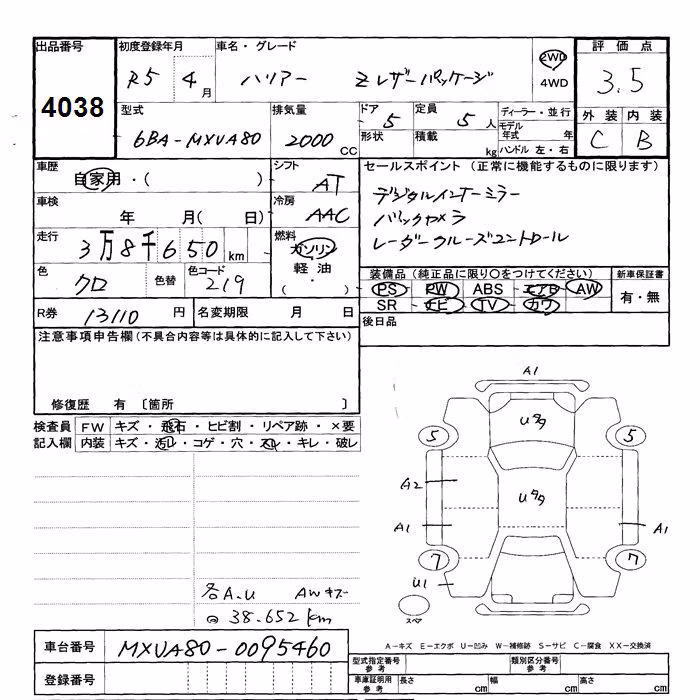 出品番号 初度登録年月 車名・グレード 2WD 評価点
4038 R5 4月 ハリアー Zレザーパッケージ 4WD 3.5
型式 排気量 ドア 5 定員 5人 ディーラー・並行 外装 内装
6BA-MXUA80 2000cc 形状 積載 kg モデル年式 年 C B
ハンドル 左・右
車歴 自家用・( ) シフト AT セールスポイント(正常に機能するものに限ります)
車検 年 月( 日) 冷房 AAC デジタルインナーミラー
バックカメラ
走行 3万8千650km 燃料 ガソリン レーダークルーズコントロール
軽油
・( )
色 クロ 色替 色コード 219 装備品(純正品に限り○をつけてください) 新車保証書
PS PW ABS エアB AW 有・無
SR ナビ TV カワ
R券 13110円 名変期限 月 日 後日品
注意事項申告欄(不具合内容等は具体的に記入して下さい)
修復歴 有〔箇所 〕
検査員 FW キズ・飛石・ヒビ割・リペア跡・×要
記入欄 内装 キズ・汚れ・コゲ・穴・スレ・キレ・破レ
A1
Uタタ
5 5
A2 Uタタ
A1 A1
7 7
U1
スペア
各A.U AWキズ
@38.652km
A-キズ E-エクボ U-凹み W-補修跡 S-サビ C-腐食 XX-交換済
車台番号 MXUA80-0095460
型式指定番号 参考 類別区分番号 参考
登録番号 車庫証明用 参考 長さ cm 幅 cm 高さ cm